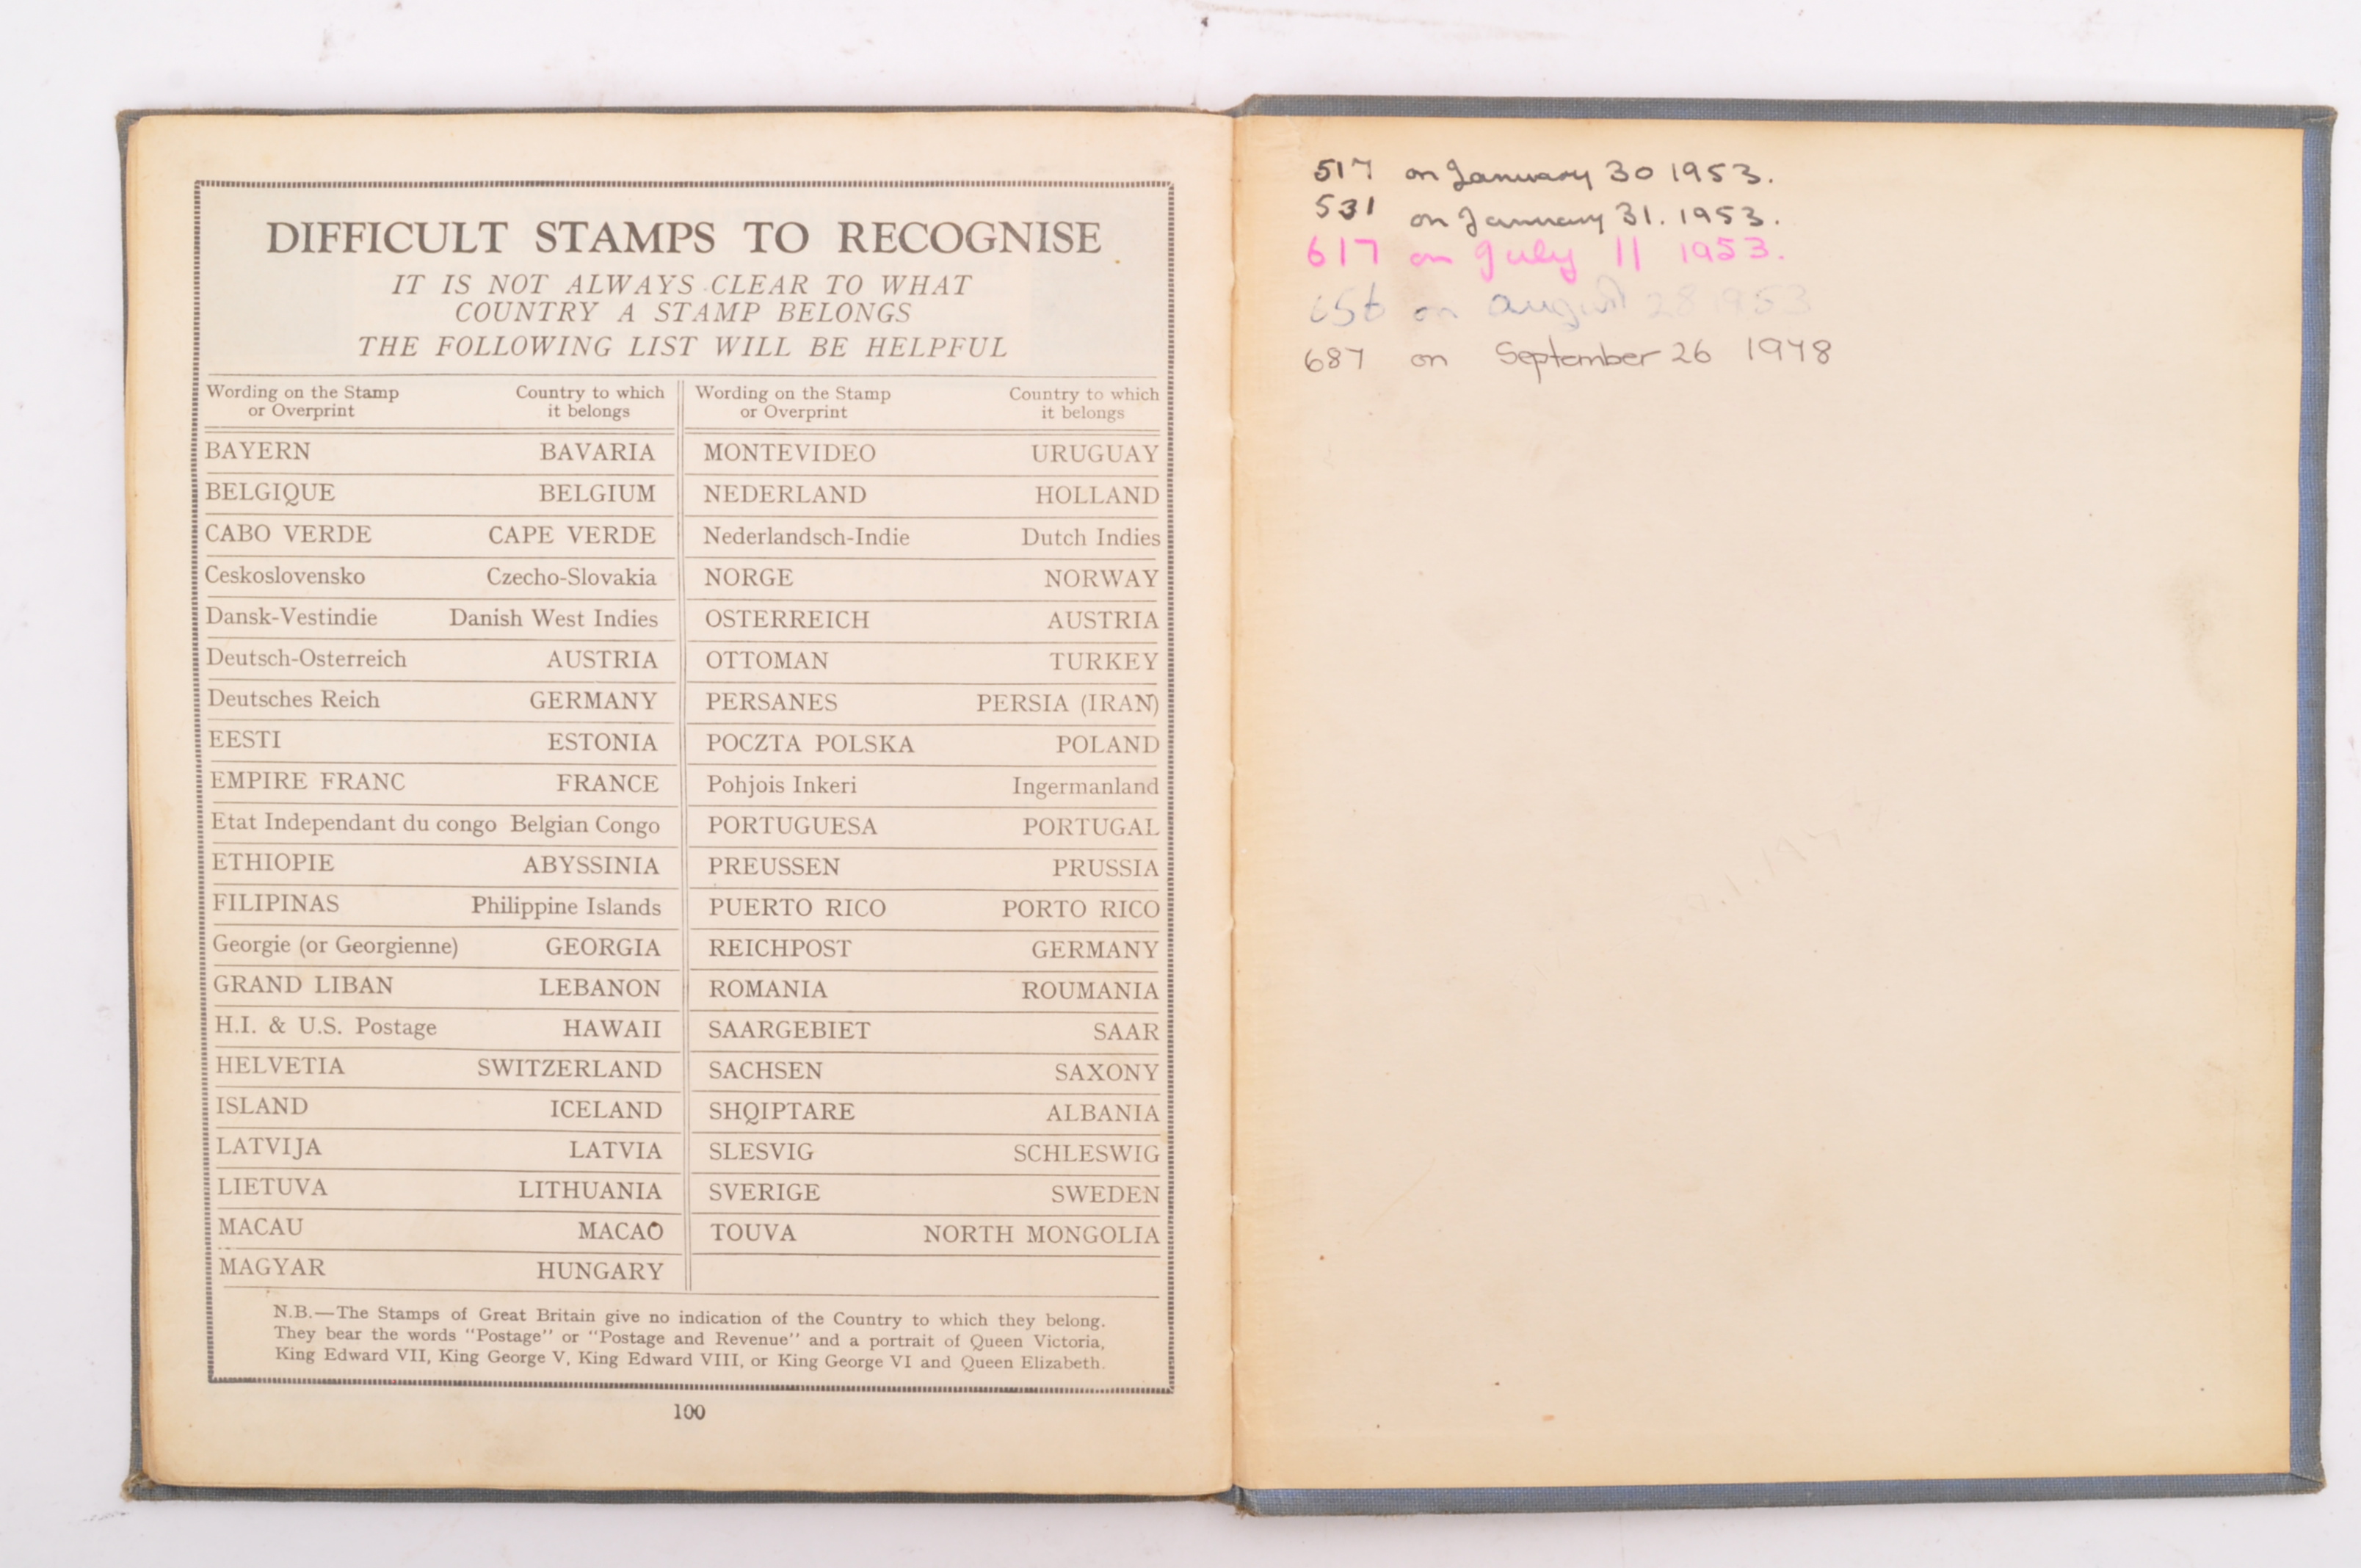 DIFFICULT STAMPS TO RECOGNISE
IT IS NOT ALWAYS CLEAR TO WHAT
COUNTRY A STAMP BELONGS
THE FOLLOWING LIST WILL BE HELPFUL
Wording on the Stamp Country to which Wording on the Stamp Country to which
or Overprint it belongs or Overprint it belongs
BAYERN BAVARIA MONTEVIDEO URUGUAY
BELGIQUE BELGIUM NEDERLAND HOLLAND
CABO VERDE CAPE VERDE Nederlandsch-Indie Dutch Indies
Ceskoslovensko Czecho-Slovakia NORGE NORWAY
Dansk-Vestindie Danish West Indies OSTERREICH AUSTRIA
Deutsch-Osterreich AUSTRIA OTTOMAN TURKEY
Deutsches Reich GERMANY PERSANES PERSIA (IRAN)
EESTI ESTONIA POCZTA POLSKA POLAND
EMPIRE FRANC FRANCE Pohjois Inkeri Ingermanland
Etat Independant du congo Belgian Congo PORTUGUESA PORTUGAL
ETHIOPIE ABYSSINIA PREUSSEN PRUSSIA
FILIPINAS Philippine Islands PUERTO RICO PORTO RICO
Georgie (or Georgienne) GEORGIA REICHPOST GERMANY
GRAND LIBAN LEBANON ROMANIA ROUMANIA
H.I. & U.S. Postage HAWAII SAARGEBIET SAAR
HELVETIA SWITZERLAND SACHSEN SAXONY
ISLAND ICELAND SHQIPTARE ALBANIA
LATVIJA LATVIA SLESVIG SCHLESWIG
LIETUVA LITHUANIA SVERIGE SWEDEN
MACAU MACAO TOUVA NORTH MONGOLIA
MAGYAR HUNGARY
N.B.—The Stamps of Great Britain give no indication of the Country to which they belong.
They bear the words "Postage" or "Postage and Revenue" and a portrait of Queen Victoria,
King Edward VII, King George V, King Edward VIII, or King George VI and Queen Elizabeth.
100
517 on January 30 1953.
531 on January 31. 1953.
617 on July 11 1953.
656 on august 28 1953
687 on September 26 1978